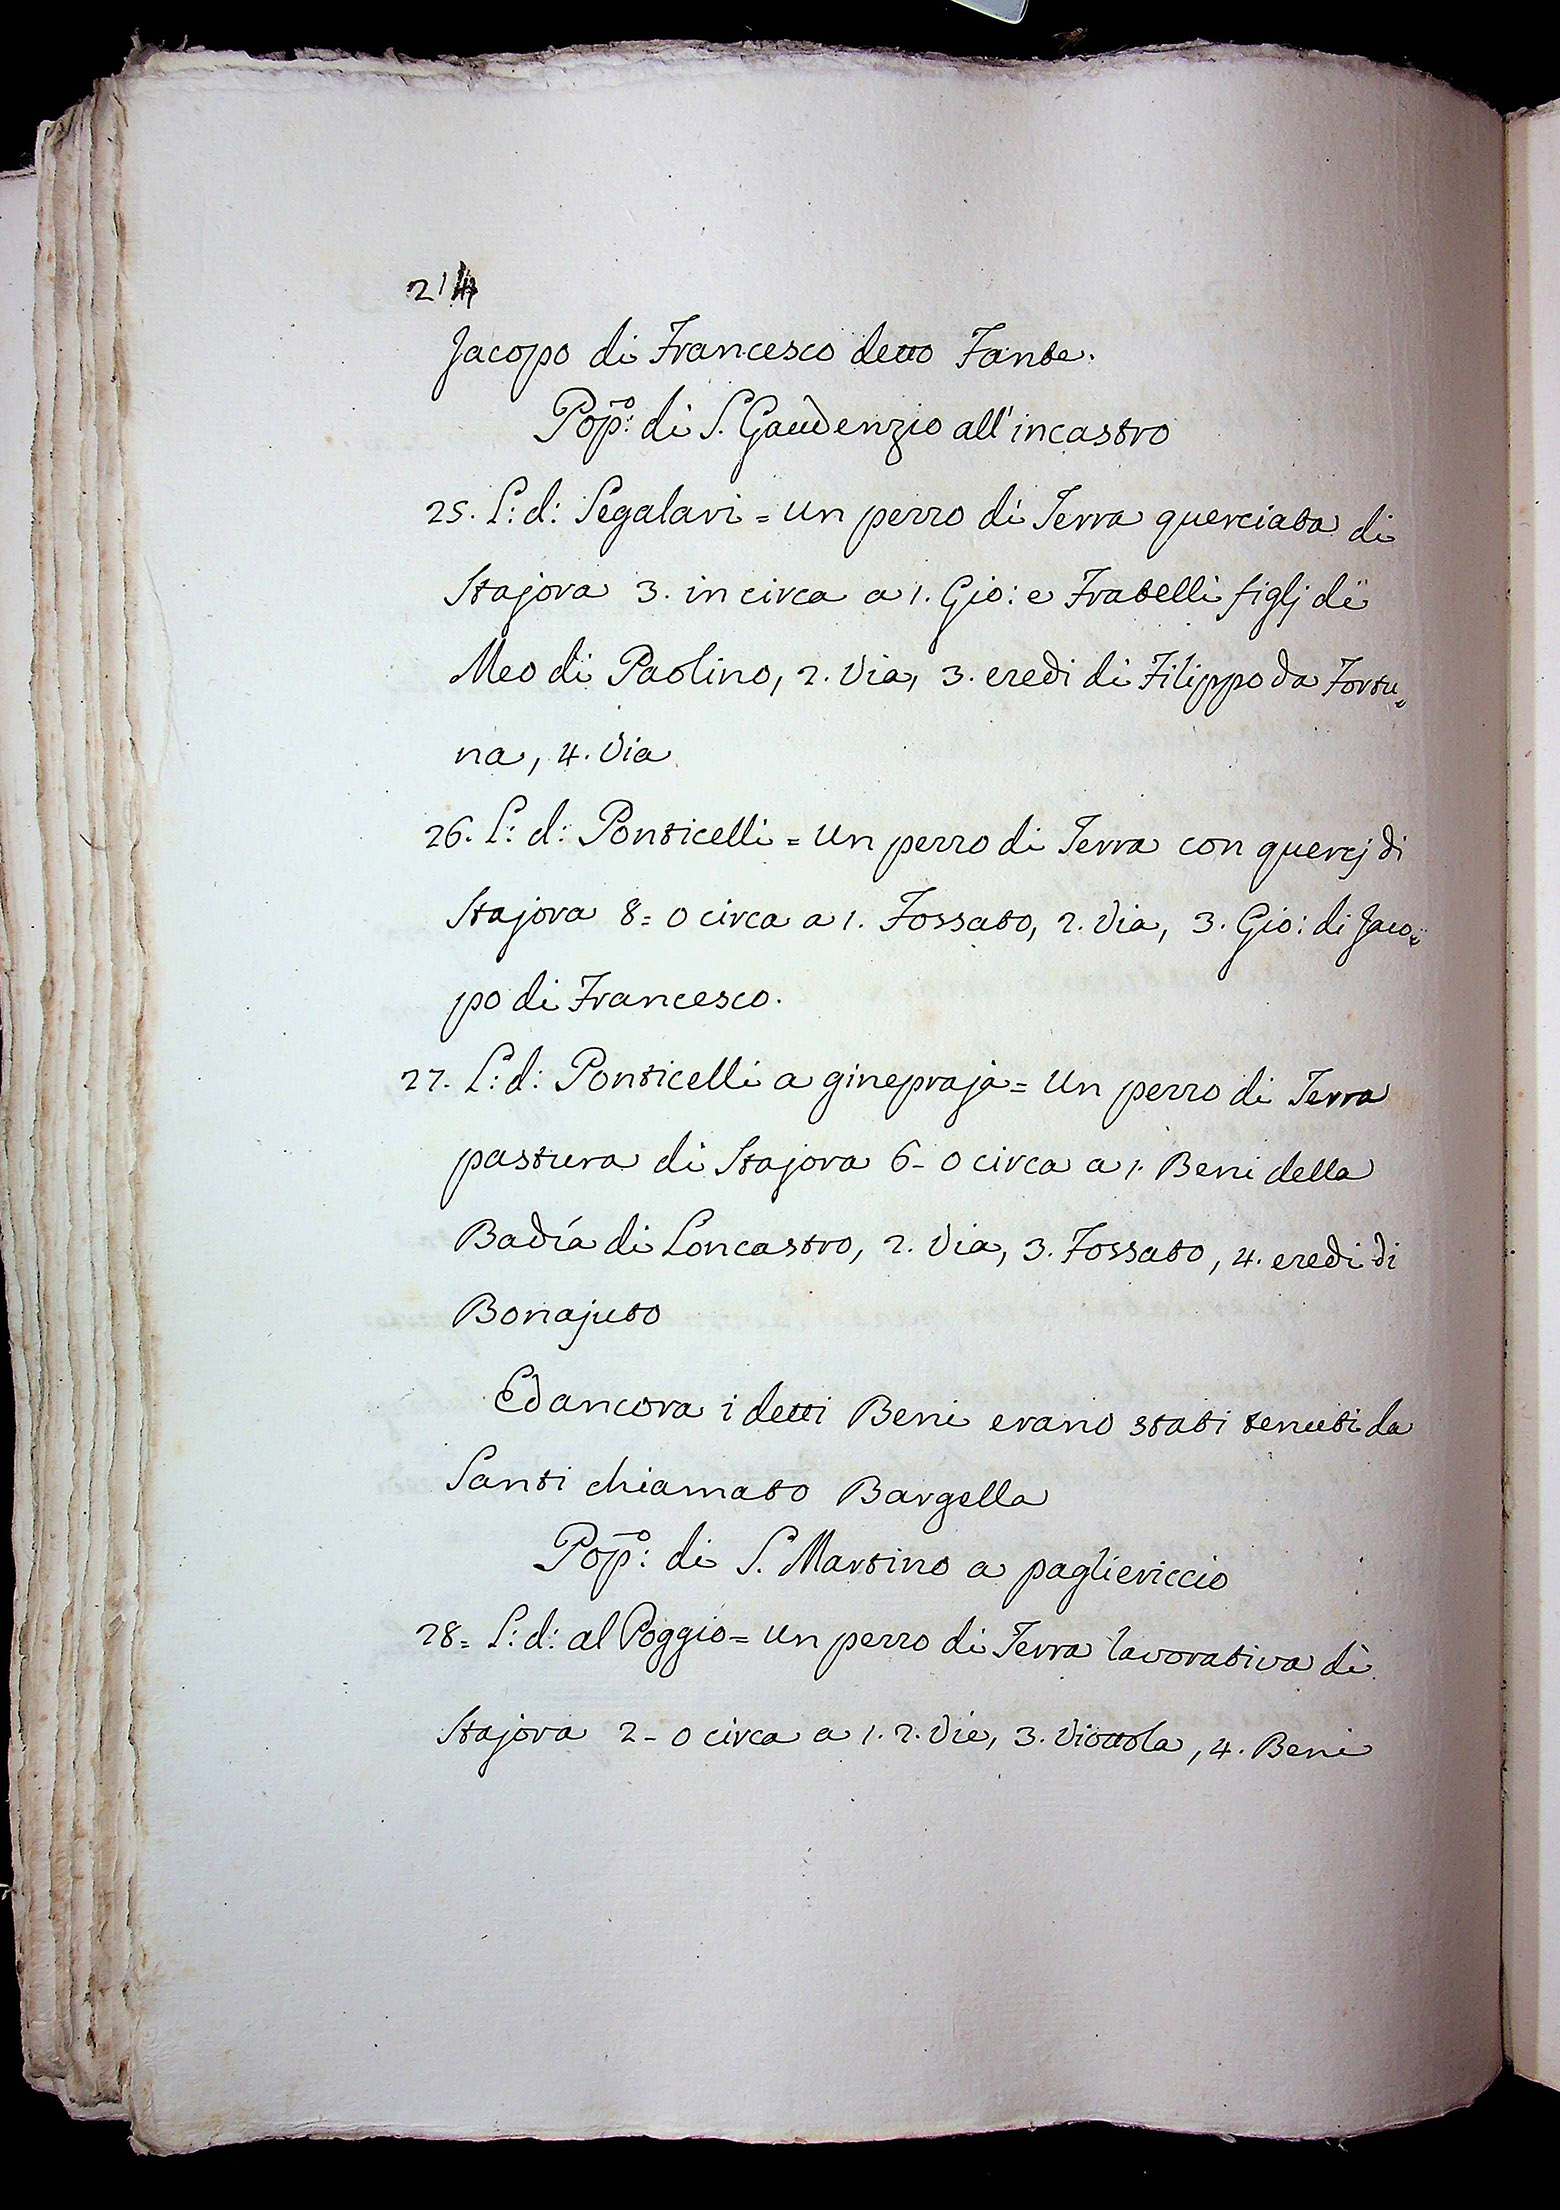 214
Jacopo di Francesco detto Fante.
Pop̄o: di S. Gaudenzio all'incastro
25. L: d: Segalari = un pezzo di Terra querciata di
Stajora 3. in circa a 1. Gio: e Fratelli figlj di
Meo di Paolino, 2. Via, 3. eredi di Filippo da Fortu=
na, 4. Via
26. L: d: Ponticelli = un pezzo di Terra con quercj di
Stajora 8= 0 circa a 1. Fossato, 2. Via, 3. Gio: di Jaco=
po di Francesco.
27. L: d: Ponticelli a ginepraja = Un pezzo di Terra
pastura di Stajora 6- 0 circa a 1. Beni della
Badía di Loncastro, 2. Via, 3. Fossato, 4. eredi di
Bonajuto
Ed ancora i detti Beni erano stati tenuti da
Santi chiamato Bargella
Pop̄o: di S. Martino a pagliericcio
28= L: d: al Poggio = un pezzo di Terra lavorativa di
Stajora 2- 0 circa a 1. 2. Vie, 3. Viottola, 4. Beni